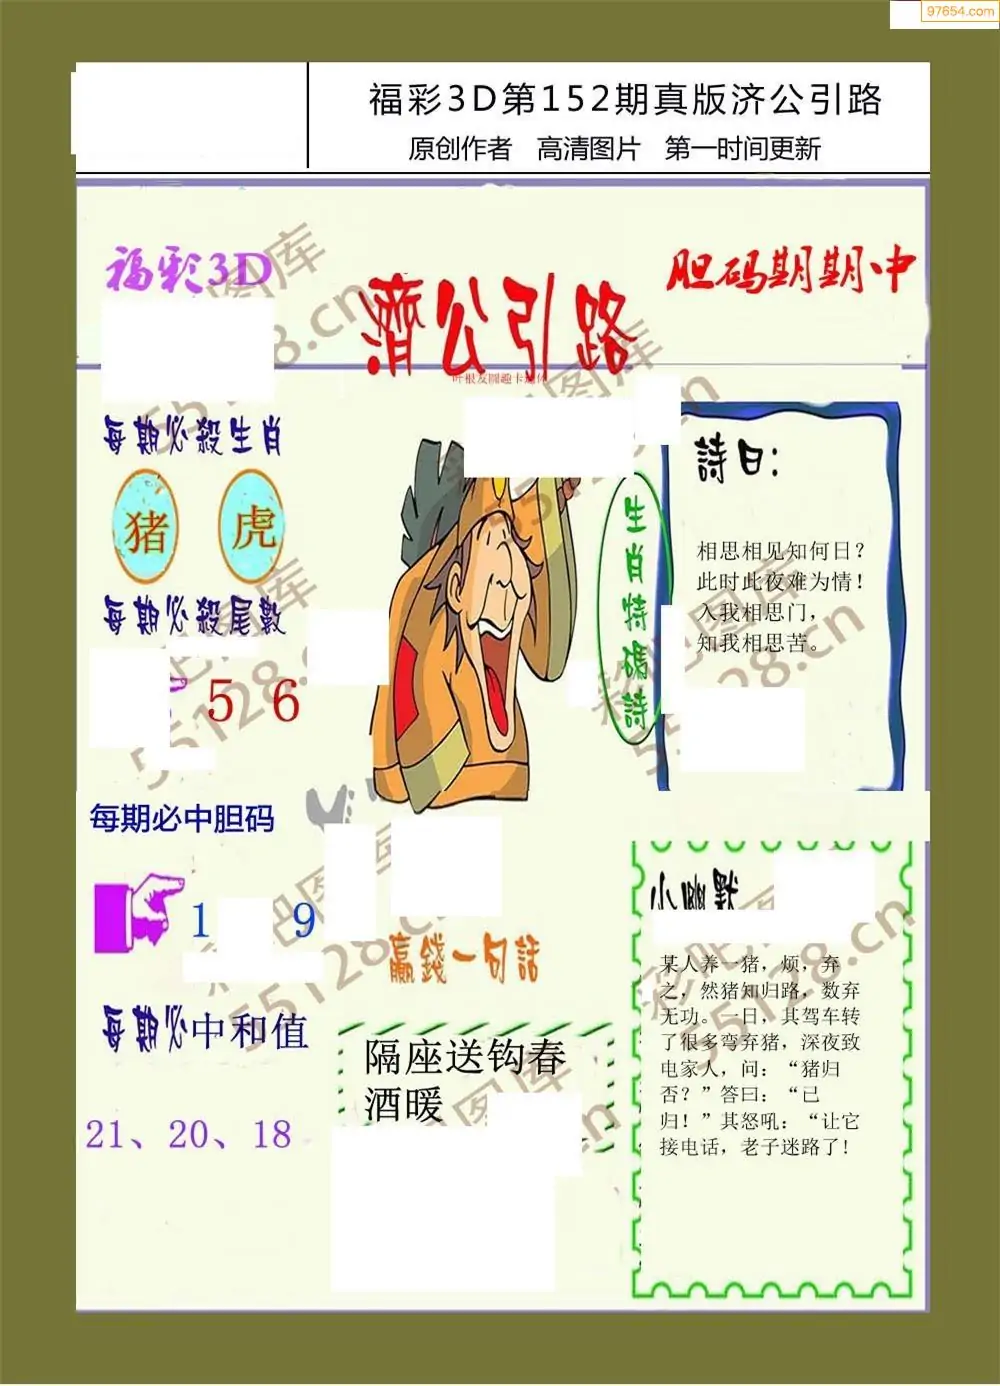 97654.com
福彩3D第152期真版济公引路
原创作者 高清图片 第一时间更新
福彩3D
濟公引路
胆码期期中
叶根友圆趣卡通体
每期必殺生肖
猪 虎
每期必殺尾數
5 6
每期必中胆码
1 9
每期必中和值
21、20、18
生肖特碼詩
詩曰:
相思相见知何日?
此时此夜难为情!
入我相思门,
知我相思苦。
赢錢一句話
隔座送钩春
酒暖
小幽默
某人养一猪,烦,弃
之,然猪知归路,数弃
无功。一日,其驾车转
了很多弯弃猪,深夜致
电家人,问:“猪归
否?”答曰:“已
归!”其怒吼:“让它
接电话,老子迷路了!
彩吧图库
55128.cn